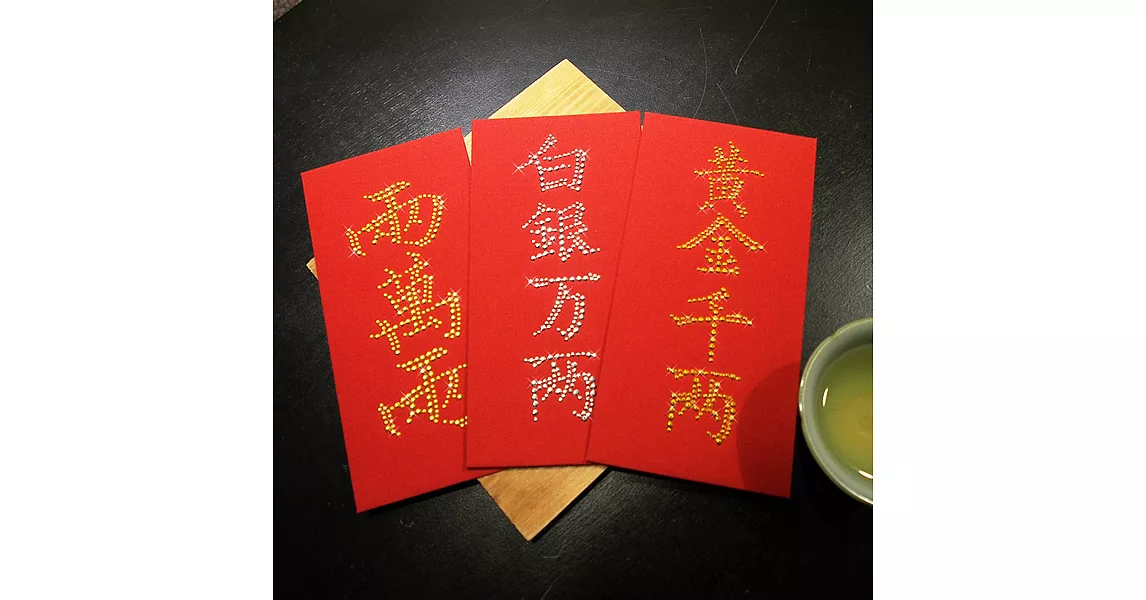 黃金千两
白銀万两
兩萬兩